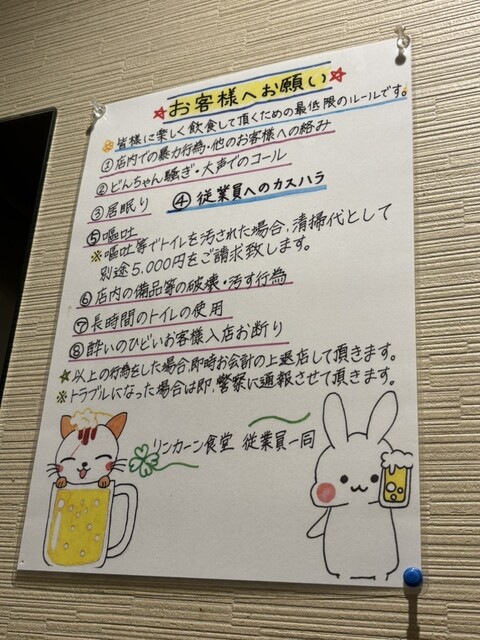 ☆お客様へお願い☆
皆様に楽しく飲食して頂くための最低限のルールです。
①店内での暴力行為・他のお客様への絡み
②どんちゃん騒ぎ・大声でのコール
③居眠り ④従業員へのカスハラ
⑤嘔吐
※嘔吐等でトイレを汚された場合、清掃代として
別途5,000円をご請求致します。
⑥店内の備品等の破壊・汚す行為
⑦長時間のトイレの使用
⑧酔いのひどいお客様入店お断り
☆以上の行為をした場合、即時お会計の上退店して頂きます。
※トラブルになった場合は即、警察に通報させて頂きます。
リンカーン食堂 従業員一同